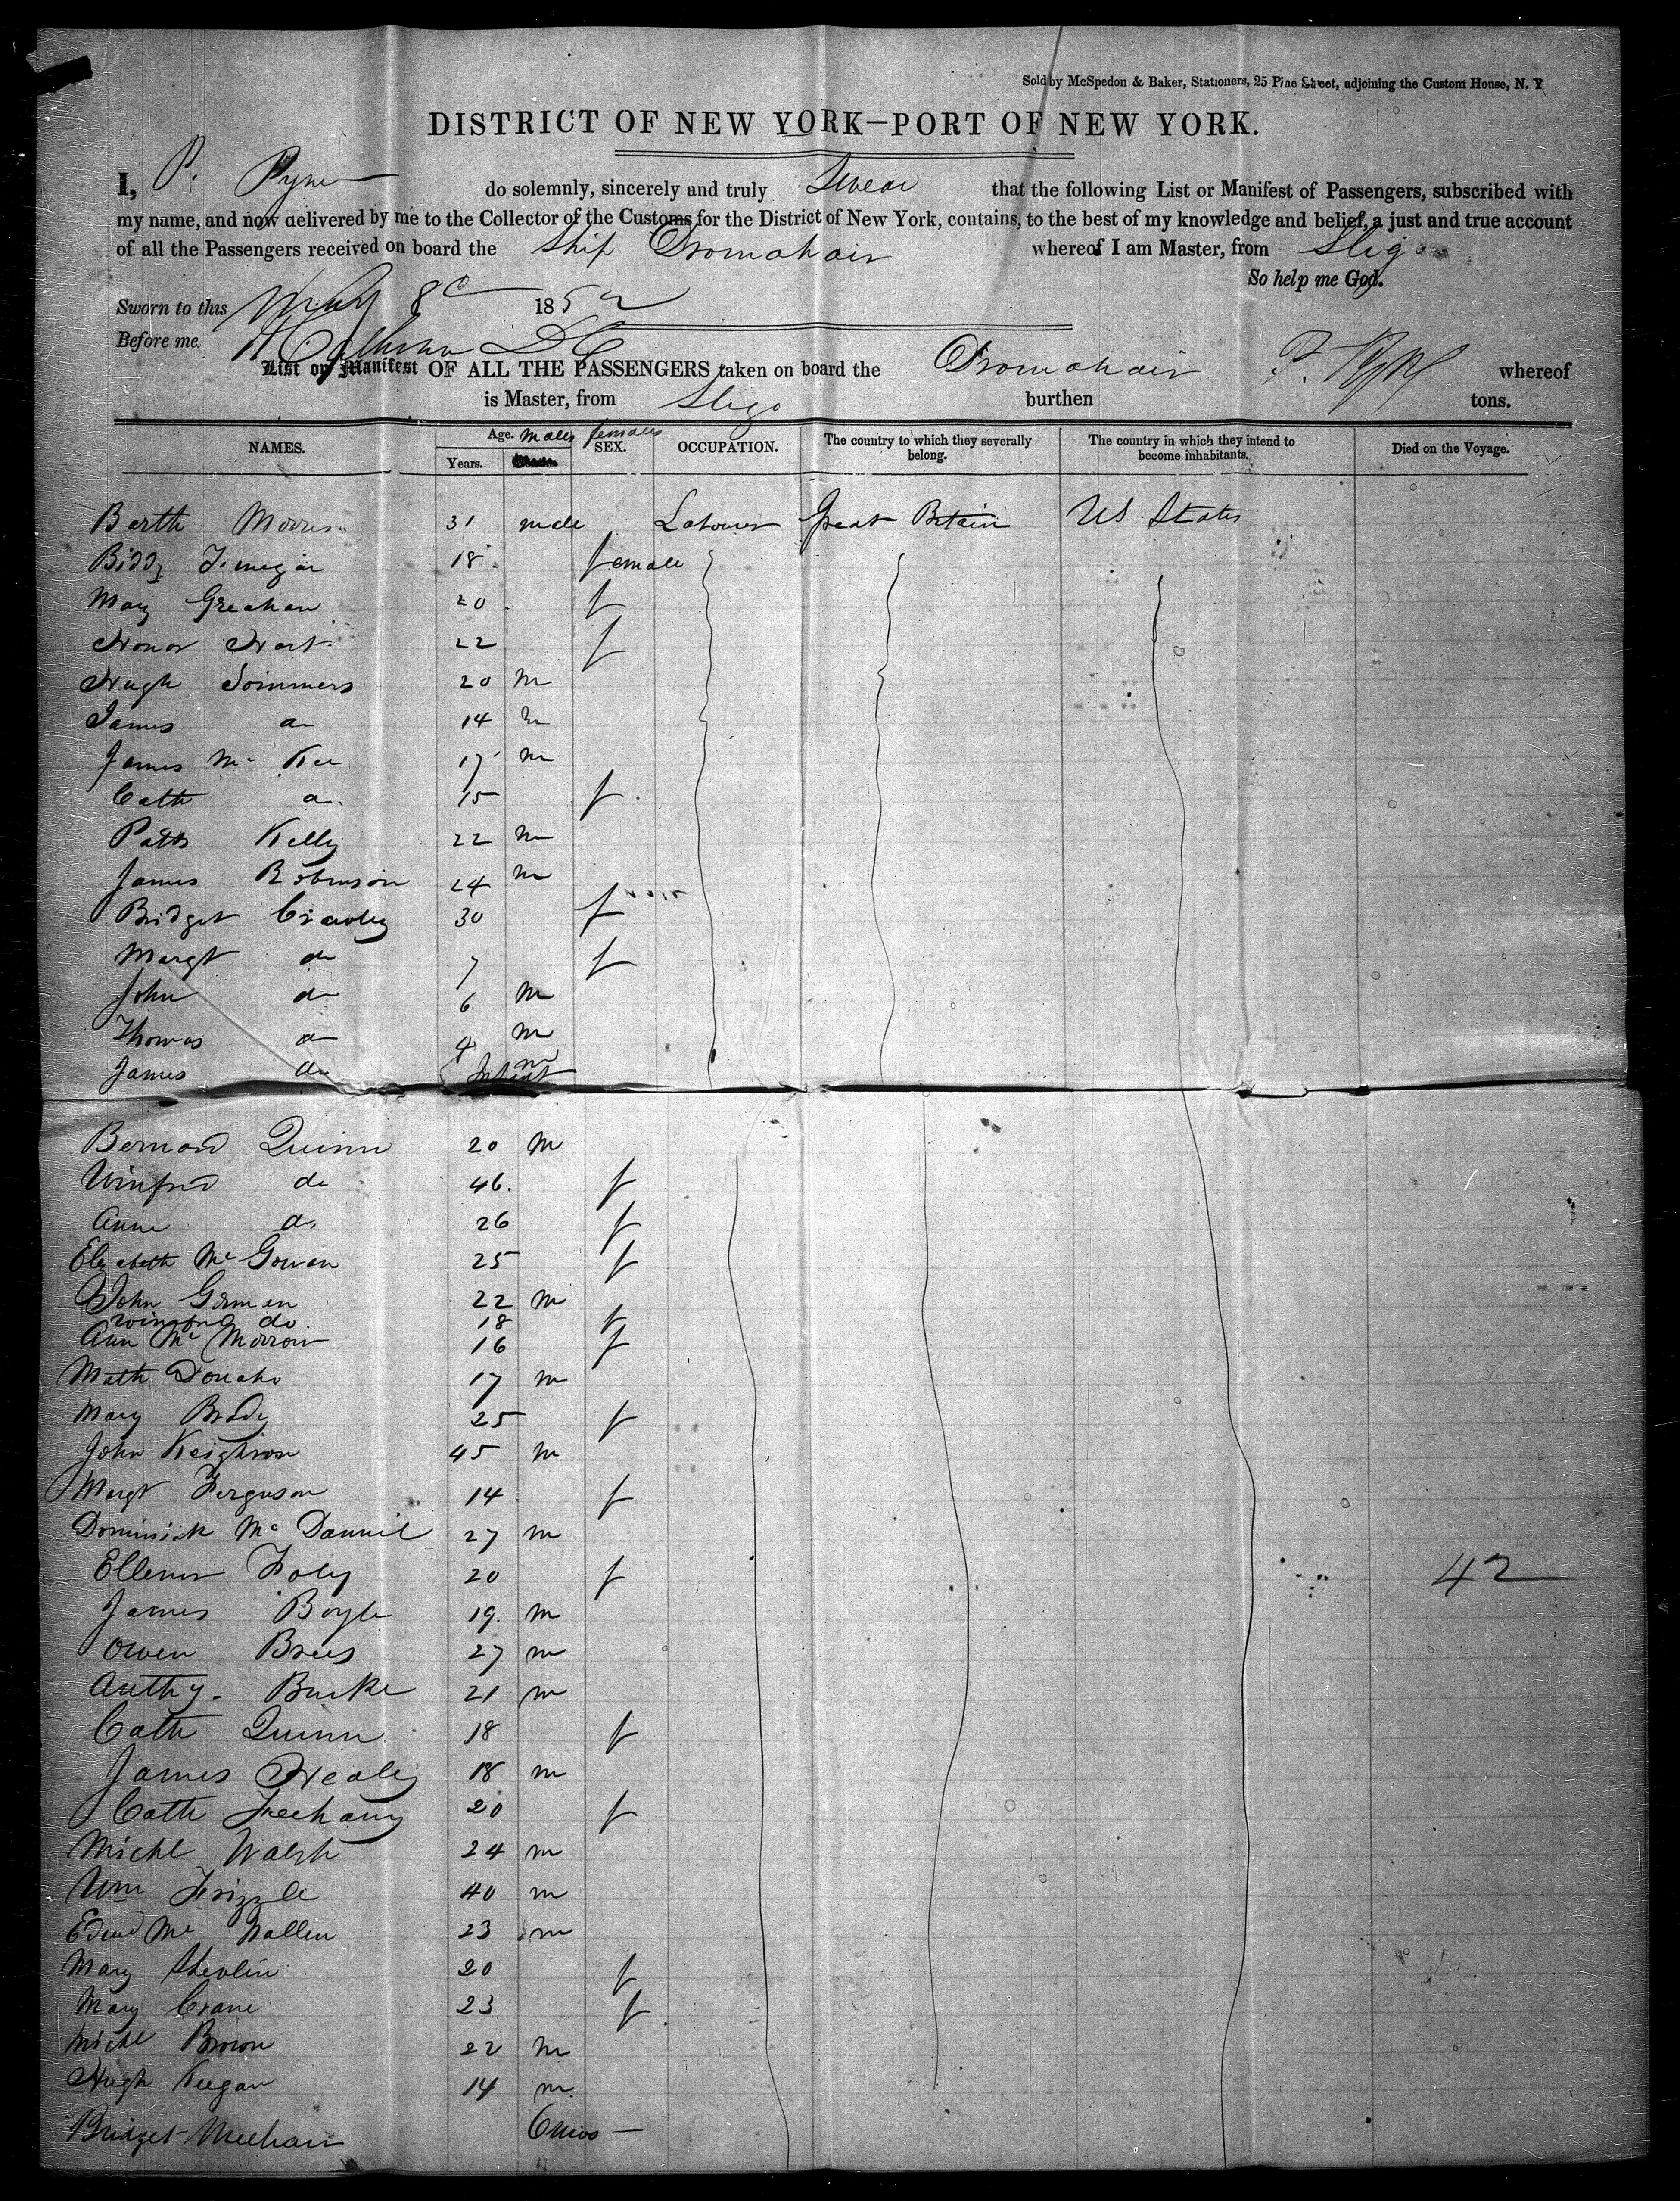 Sold by McSpedon & Baker, Stationers, 25 Pine Street, adjoining the Custom House, N. Y
DISTRICT OF NEW YORK—PORT OF NEW YORK.
I, P. Pyne do solemnly, sincerely and truly Swear that the following List or Manifest of Passengers, subscribed with
my name, and now delivered by me to the Collector of the Customs for the District of New York, contains, to the best of my knowledge and belief, a just and true account
of all the Passengers received on board the Ship Dromahair whereof I am Master, from Sligo
So help me God.
Sworn to this May 8 1852
Before me.
List or Manifest OF ALL THE PASSENGERS taken on board the Dromahair P. Pyne whereof
is Master, from Sligo burthen tons.
NAMES. Age. males females SEX. OCCUPATION. The country to which they severally belong. The country in which they intend to become inhabitants. Died on the Voyage.
Years.
Barth Morris 31 male Labourer Great Britain US States
Biddy Finegan 18 female
Mary Greahan 20 f
Honor Hart 22 f
Hugh Sommers 20 m
James do 14 m
James Mc Kee 17 m
Cath do 15 f
Patk Kelly 22 m
James Robinson 24 m
Bridget Crawley 30 f
Margt do 7 f
John do 6 m
Thomas do 4 m
James do Infant m
Bernard Quinn 20 m
Winfred do 46. f
Anne do. 26 f
Elizabeth Mc Gowan 25 f
John Gorman 22 m
Winifred do. 18 f
Ann Mc Morrow 16 f
Math Donaho 17 m
Mary Brady 25 f
John Keighron 45 m
Margt Ferguson 14 f
Dominick Mc Dannil 27 m
Ellenor Foley 20 f 42
James Boyle 19. m
Owen Brees 27 m
Anthy. Burke 21 m
Cath Quinn 18 f
James Healey 18 m
Cath Feehany 20 f
Michl Walsh 24 m
Wm Frizzle 40 m
Edwd Mc Nallen 23 m
Mary Shevlin 20 f
Mary Crane 23 f
Michl Brown 22 m
Hugh Keegan 14 m.
Bridget Meehan 6 mos